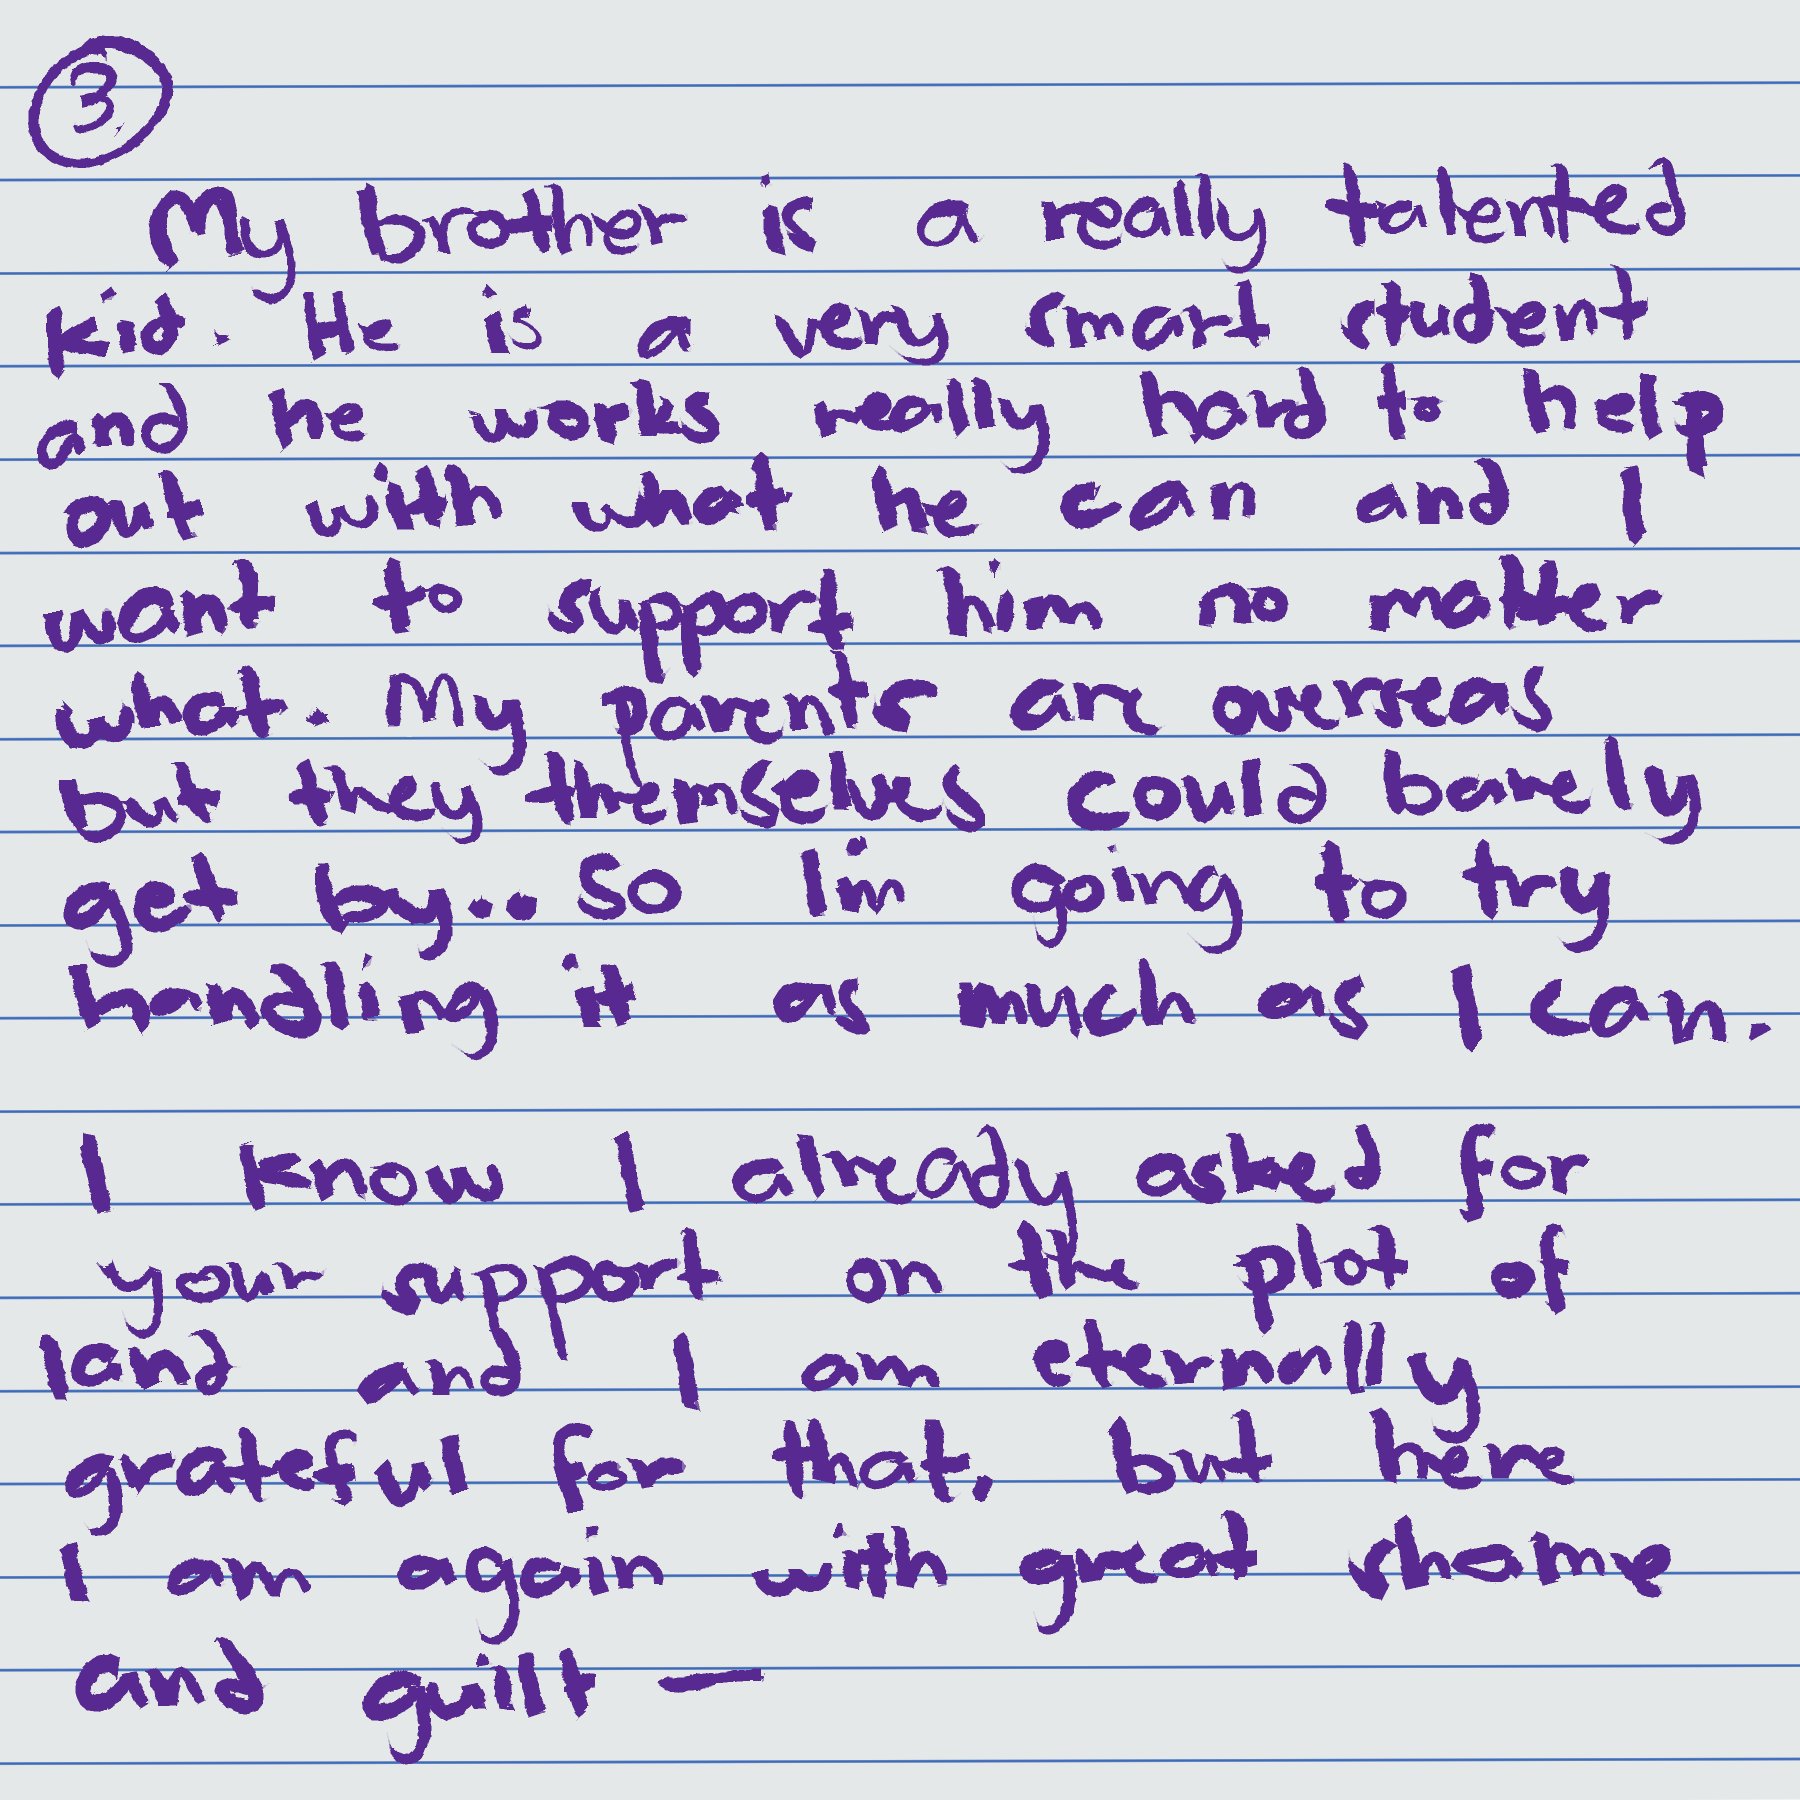 3
My brother is a really talented
kid. He is a very smart student
and he works really hard to help
out with what he can and I
want to support him no matter
what. My parents are overseas
but they themselves could barely
get by.. So Im going to try
handling it as much as I can.
I know I already asked for
your support on the plot of
land and I am eternally
grateful for that, but here
I am again with great shame
and guilt —